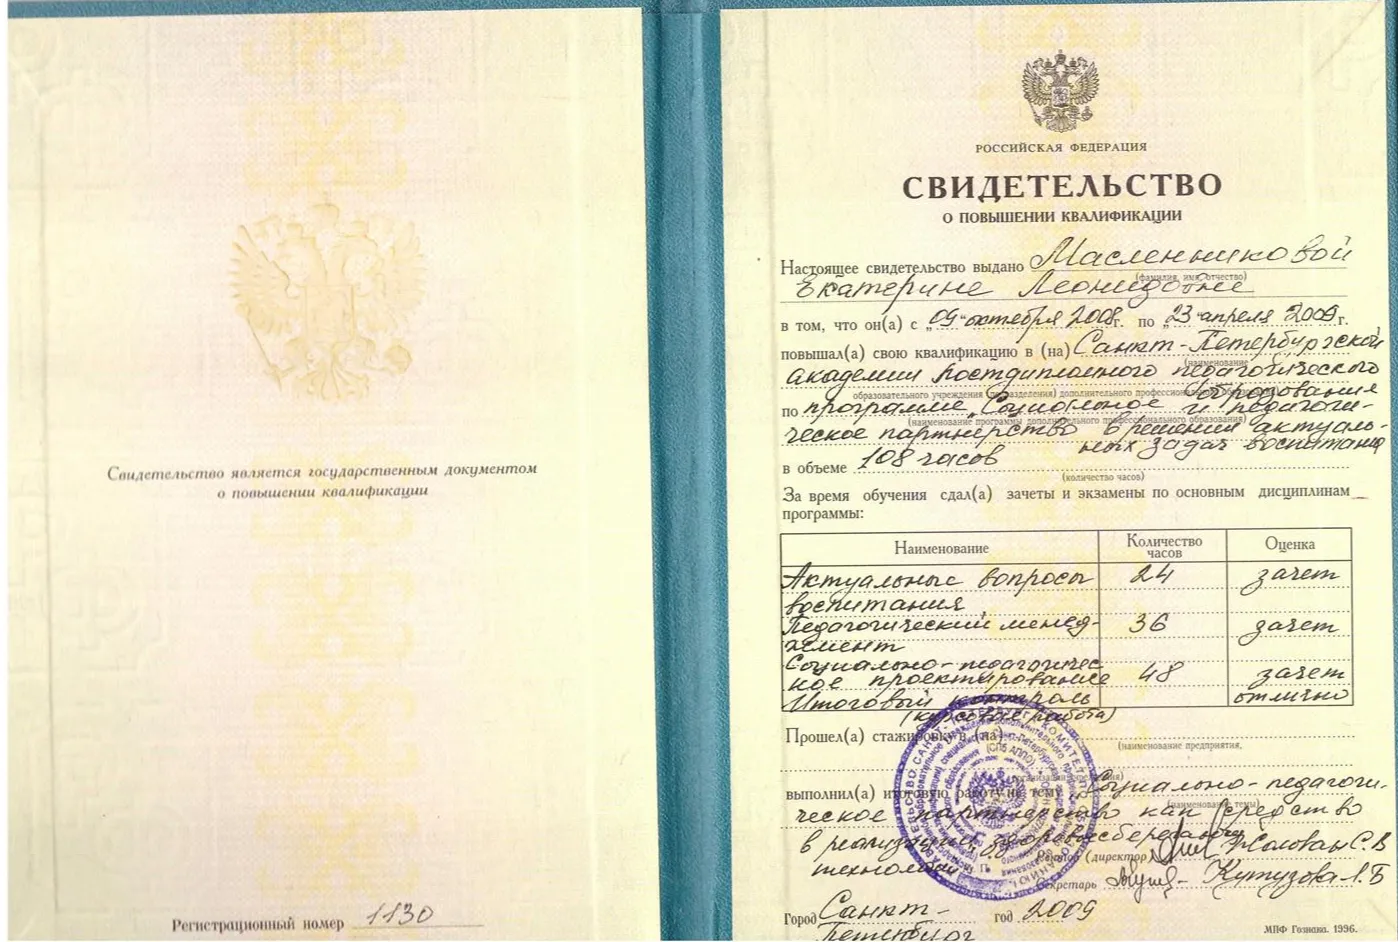 Свидетельство является государственным документом
о повышении квалификации
Регистрационный номер 1130
РОССИЙСКАЯ ФЕДЕРАЦИЯ
СВИДЕТЕЛЬСТВО
О ПОВЫШЕНИИ КВАЛИФИКАЦИИ
Настоящее свидетельство выдано Масленниковой
(фамилия, имя, отчество)
Екатерине Леонидовне
в том, что он(а) с „09" октября 2008г. по „23" апреля 2009г.
повышал(а) свою квалификацию в (на) Санкт-Петербургской
(наименование
академии постдипломного педагогического
образовательного учреждения (подразделения) дополнительного профессионального
образования
по программе „Социальное и педагоги-
(наименование программы дополнительного профессионального образования)
ческое партнерство в решении актуаль-
ных задач воспитания
в объеме 108 часов
(количество часов)
За время обучения сдал(а) зачеты и экзамены по основным дисциплинам
программы:
Наименование Количество часов Оценка
Актуальные вопросы 24 зачет
воспитания
Педагогический менед- 36 зачет
жмент
Социально-педагогичес
кое проектирование 48 зачет
Итоговый контроль отлично
(курсовая работа)
Прошел(а) стажировку в (на)
(наименование предприятия,
выполнил(а) итоговую работу на тему Социально-педагоги-
(наименование темы)
ческое партнерство как средство
в реализации здоровьесберегающих
технологий
Ректор (директор) Жолован С.В
Секретарь Кутузова Л.Б
Город Санкт- год 2009
Петербург
МПФ Гознака. 1996.